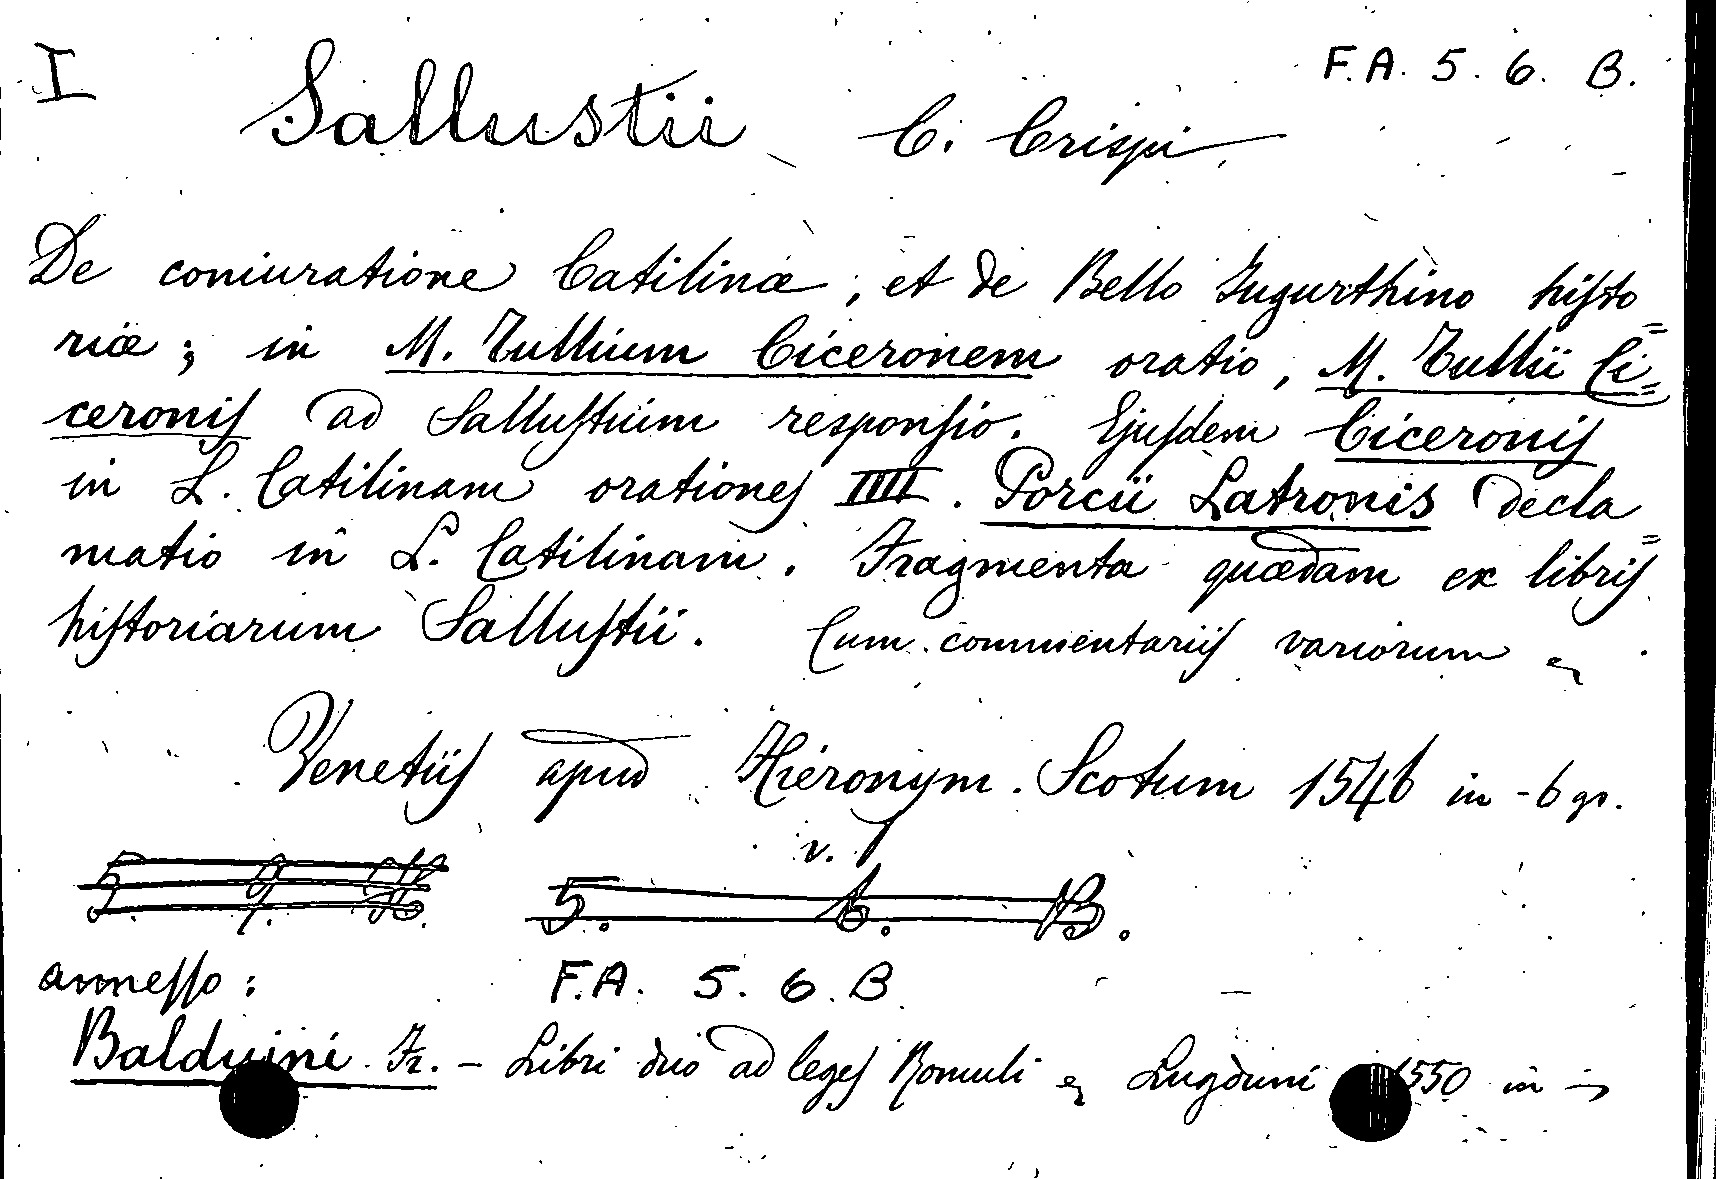 I
F.A. 5. 6. B.
Sallustii C. Crispi
De coniuratione Catilinæ, et de Bello Jugurthino histo=
riæ; in M. Tullium Ciceronem oratio, M. Tullii Ci=
ceronis ad Sallustium responsio. Ejusdem Ciceronis
in L. Catilinam orationes IIII. Porcii Latronis decla=
matio in L. Catilinam. Fragmenta quædam ex libris
historiarum Sallustii. Cum commentariis variorum
Venetiis apud Hieronym. Scotum 1546 in-6 gr.
v.
5. 6. B.
annesso: F.A. 5. 6. B
Balduini Fr. - Libri duo ad leges Romuli Lugduni 1550 in